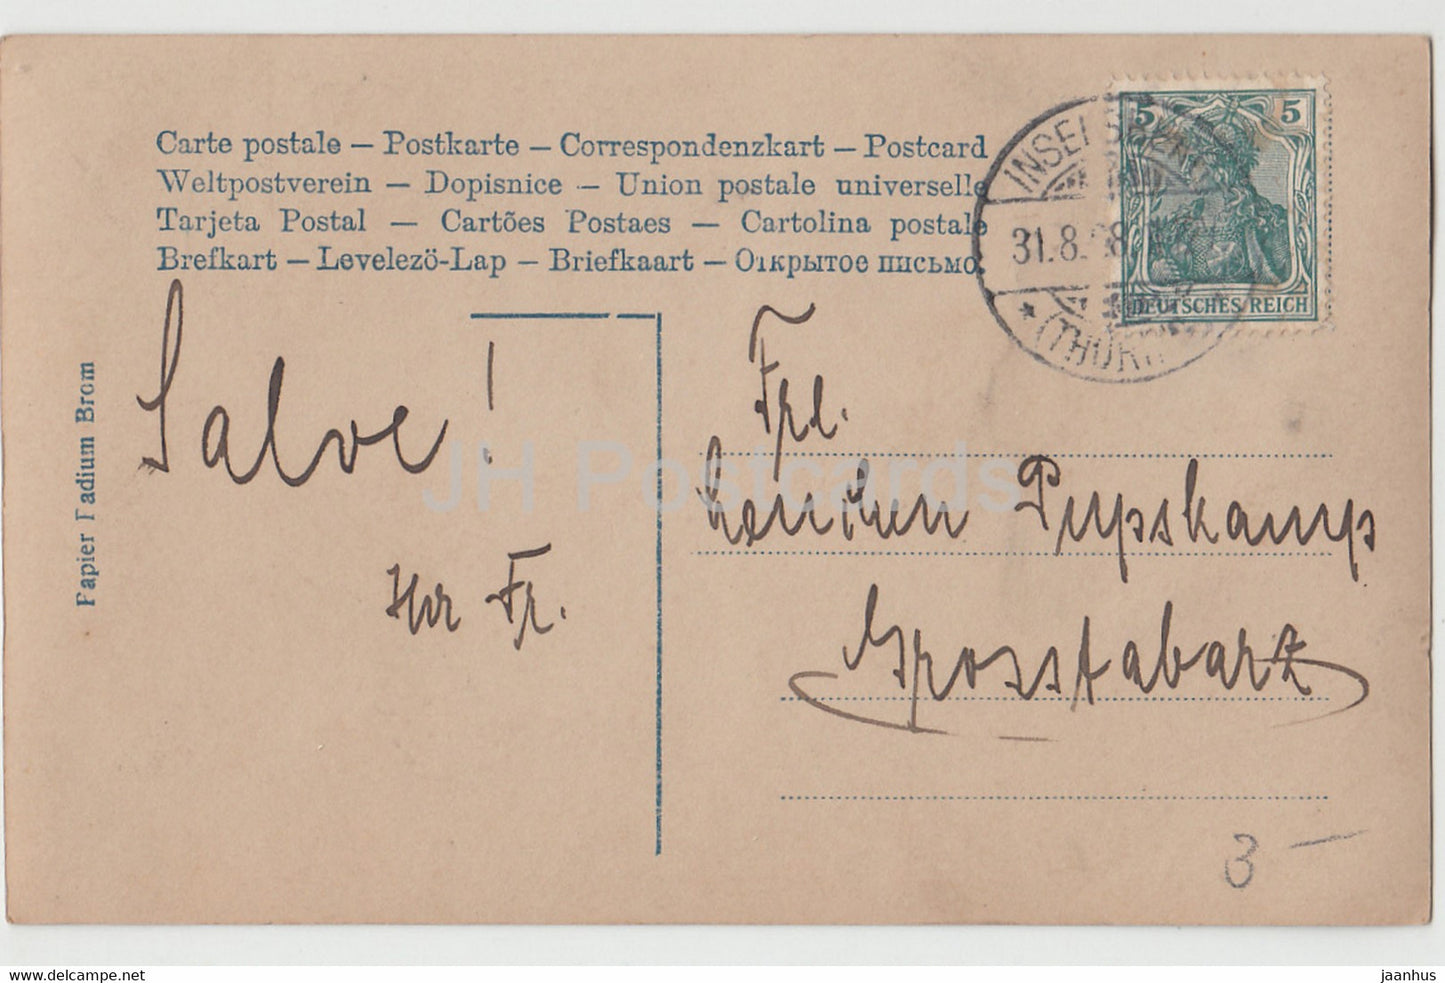 Carte postale – Postkarte – Correspondenzkart – Postcard
Weltpostverein – Dopisnice – Union postale universelle
Tarjeta Postal – Cartões Postaes – Cartolina postale
Brefkart – Levelezö-Lap – Briefkaart – Открытое письмо.
5 5
DEUTSCHES REICH
31.8.08
(THÜR
Papier Radium Brom
Salve!
Ihr Fr.
Frl.
Lenchen Pupskamp
Grosstabarz
3 –
JH Postcards
delcampe.net
jaanhus